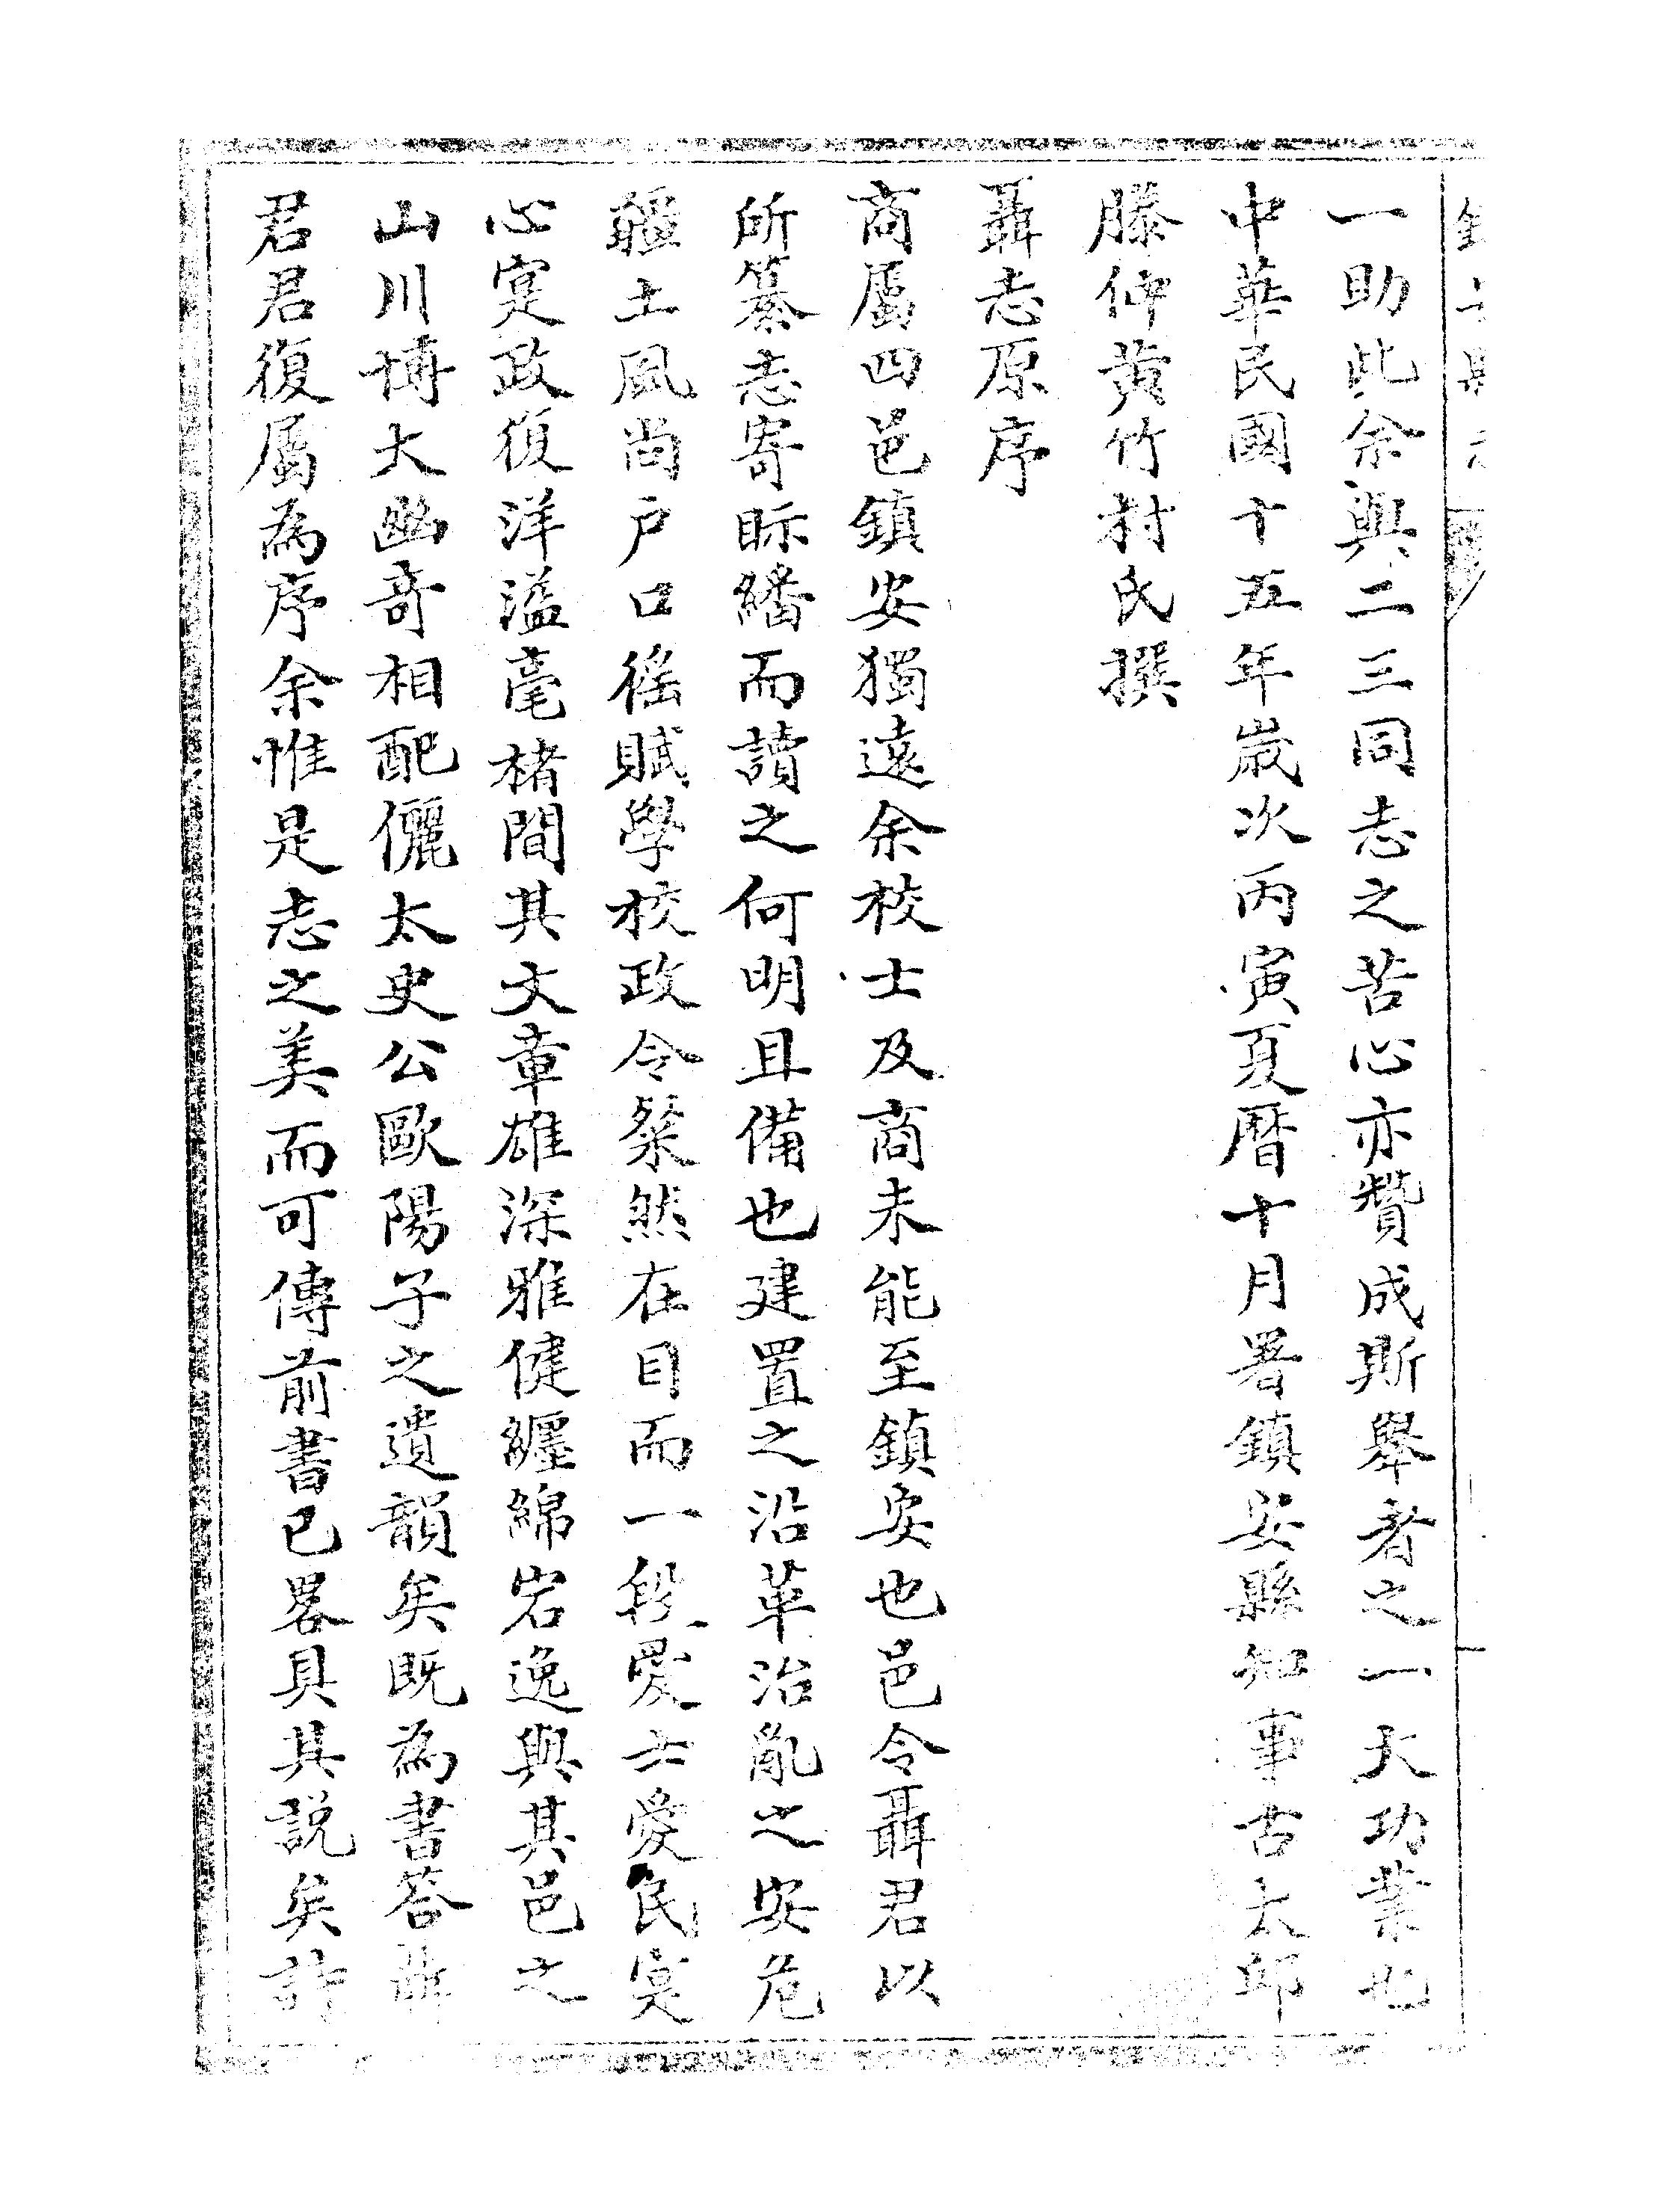 一助此余與二三同志之苦心亦贊成斯舉者之一大功業也
中華民國十五年歲次丙寅夏曆十月署鎮安縣知事古太邱
滕仲黃竹村氏撰
聶志原序
商屬四邑鎮安獨遠余校士及商未能至鎮安也邑令聶君以
所纂志寄眎繙而讀之何明且備也建置之沿革治亂之安危
疆土風尚戶口徭賦學校政令粲然在目而一段愛士愛民寔
心寔政復洋溢毫楮間其文章雄深雅健纏綿宕逸與其邑之
山川博大幽奇相配儷太史公歐陽子之遺韻矣既為書答聶
君君復屬為序余惟是志之美而可傳前書已畧具其說矣許